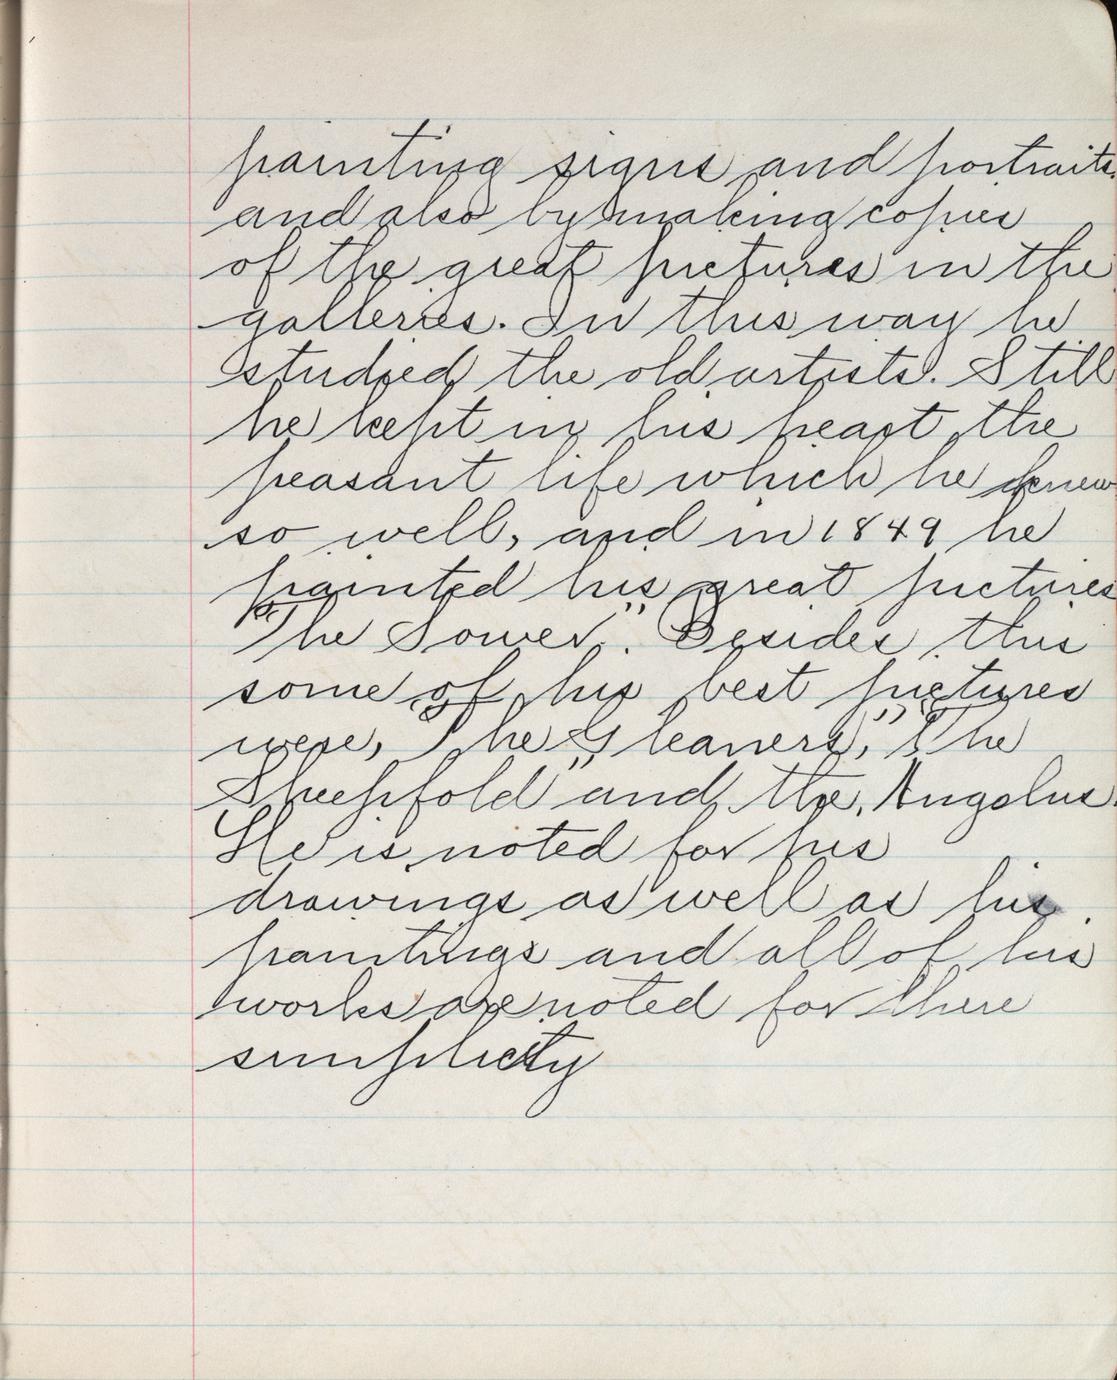 painting signs and portraits.
and also by making copies
of the great pictures in the
galleries. In this way he
studied the old artists. Still
he kept in his heart the
peasant life which he knew
so well, and in 1849 he
painted his great pictures
"The Sower". Besides this
some of his best pictures
were, "The Gleaners," "The
Sheepfold" and the, Angelus.
He is noted for his
drawings as well as his.
paintings and all of his
works are noted for there
simplicity